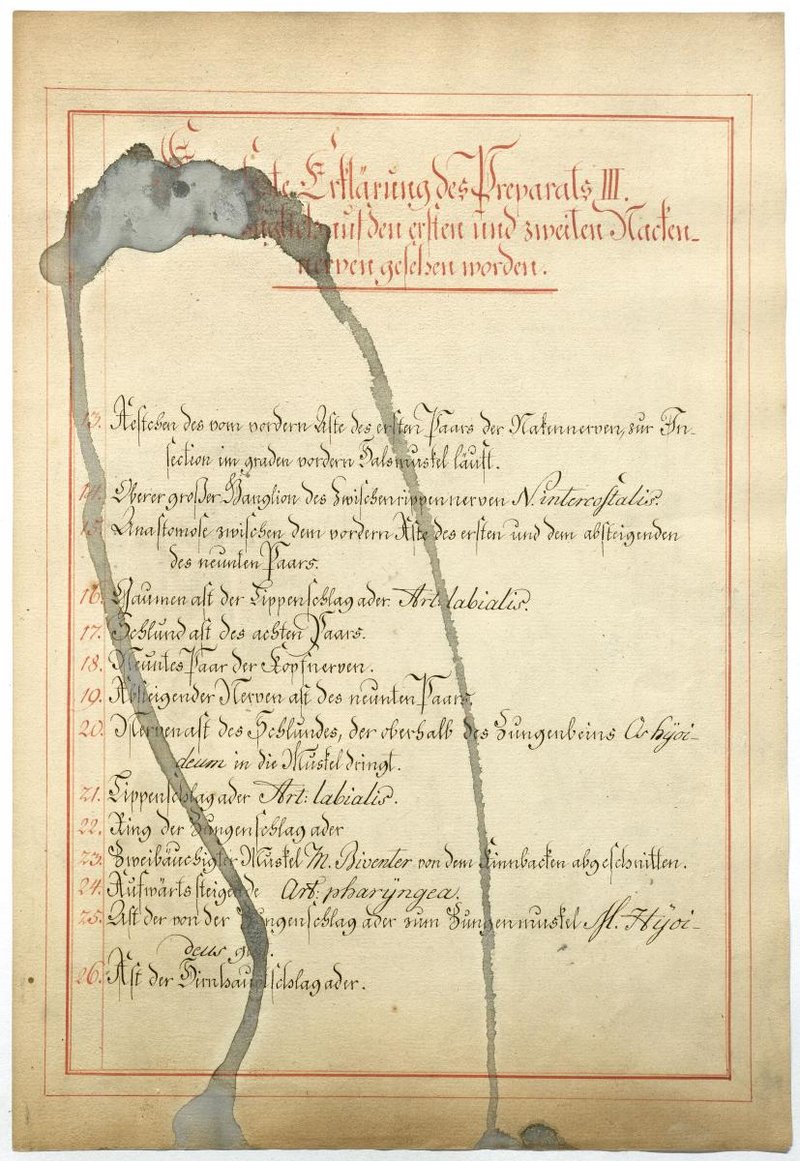 te Erklärung des Preparats III.
aus den ersten und zweiten Nacken-
nerven gesehen worden.
13. Aestchen des vom vordern Aste des ersten Paars der Nakennerven, zur In-
section im graden vordern Halsmuskel läuft.
14. Oberer großer Ganglion des Zwischenrippennerven N. intercostalis.
15. Anastomose zwischen dem vordern Aste des ersten und dem absteigenden
des neunten Paars.
16. Gaumenast der Lippenschlagader. Art: labialis.
17. Schlundast des achten Paars.
18. Neuntes Paar der Kopfnerven.
19. Absteigender Nervenast des neunten Paars.
20. Nervenast des Schlundes, der oberhalb des Zungenbeins Os hÿoi-
deum in die Muskel dringt.
21. Lippenschlagader Art: labialis.
22. Ring der Zungenschlagader
23. Zweibäuchigter Muskel M. Biventer von dem Kinnbacken abgeschnitten.
24. Aufwärtssteigende Art: pharÿngea.
25. Ast der von der Zungenschlagader zum Zungenmuskel M. Hÿoi-
deus
26. Ast der Hirnhautschlagader.